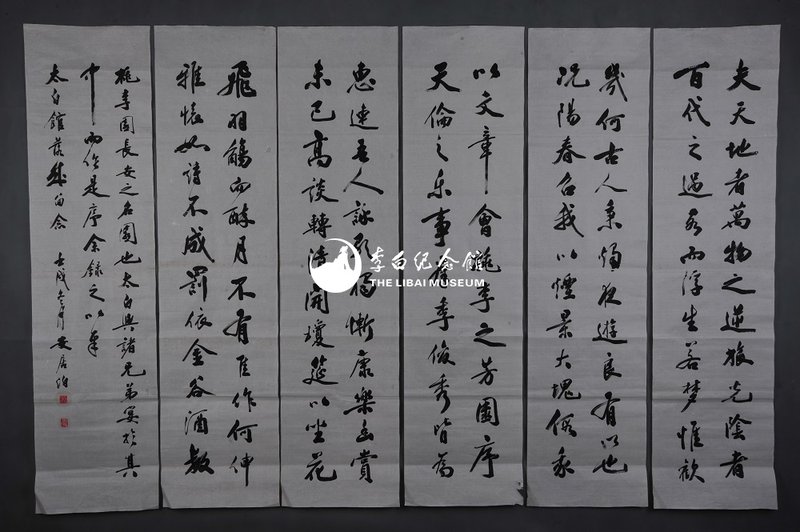 夫天地者萬物之逆旅光陰者
百代之過客而浮生若夢惟歡
幾何古人秉燭夜遊良有以也
況陽春召我以煙景大塊假我
以文章會桃李之芳園序
天倫之乐事羣季俊秀皆為
惠連吾人詠歌獨慚康樂幽賞
未已高談轉清開瓊筵以坐花
飛羽觴而醉月不有佳作何伸
雅懷如詩不成罰依金谷酒數
桃李園長安之名園也太白與諸兄弟宴於其
中而作是序余錄之以奉
太白館落成留念 壬戌
李白纪念館
THE LIBAI MUSEUM